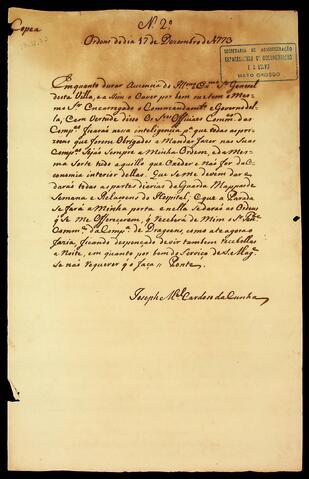 Copea
N. 2º
Ordens do dia 17 de Dezembro de 1773
SECRETARIA DE ADMINISTRAÇÃO
DEPARTAMENTO Dº DOCUMENTAÇÃO
E ARQUIVO
MATO GROSSO
Emquanto durar Auzencia do Illmº e Exmº Sr General
desta Villa, e a Sim o Haver por bem me tem o Mes-
mo Sr Encarregado o Commandamtº e Governo del-
la, Com Vertude disso Os Srs Officiaes Commdes das
Compas ficarão nesa inteligencia pª que todas as pri-
zoens que forem Obrigados a Mandar fazer nas Suas
Compas Sejão Sempre a Minha Ordem, e da Mes-
ma Sorte tudo aquillo que exceder e não for da Co-
conomia interior dellas. Que Se me devem dar
todas as partes diarias da Guarda Mappas de
Semana e Relasoens do Hospital, e que a Parada
Se fará a Minha porta e nella Se darão as Ordens
q Se Me Offerecerem, q receberá de Mim o Sr
Comme da Compª de Dragoens, como ate agora
fazia, ficando despençado de vir tambem recebellas
a Noite, em quanto por bem do Serviço de S. Mage
Se não requerer q o faça // Ponte
Joseph Mel Cardoso da Cunha